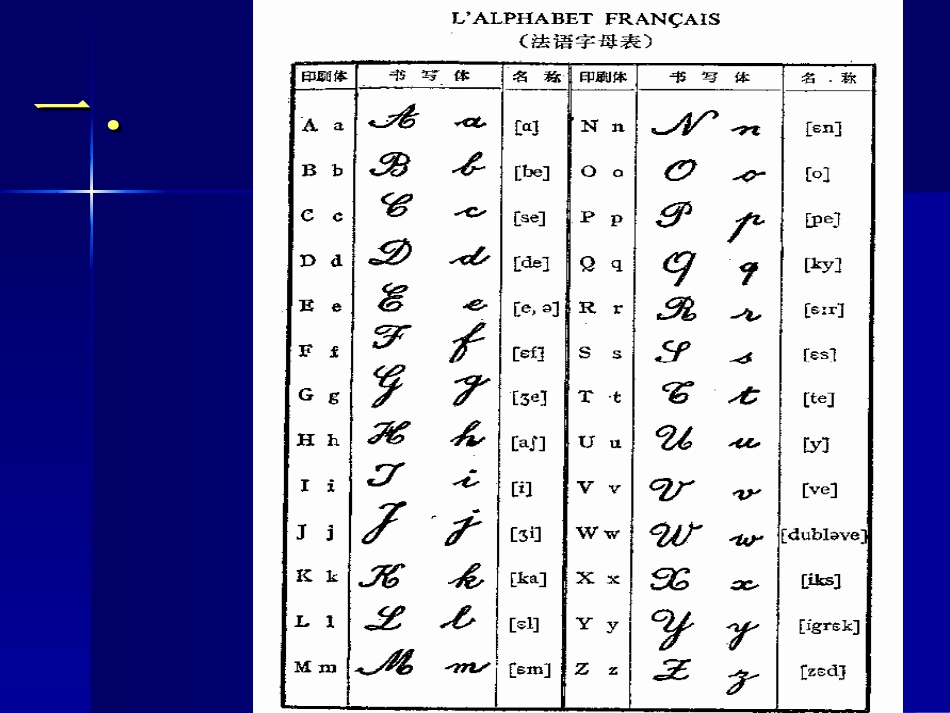 一.
L'ALPHABET FRANÇAIS
（法语字母表）
印刷体 书写体 名称 印刷体 书写体 名.称
A a A a [ɑ] N n N n [ɛn]
B b B b [be] O o O o [o]
C c C c [se] P p P p [pe]
D d D d [de] Q q Q q [ky]
E e E e [e, ə] R r R r [ɛːr]
F f F f [ɛf] S s S s [ɛs]
G g G g [ʒe] T t T t [te]
H h H h [aʃ] U u U u [y]
I i I i [i] V v V v [ve]
J j J j [ʒi] W w W w [dubləve]
K k K k [ka] X x X x [iks]
L l L l [ɛl] Y y Y y [igrɛk]
M m M m [ɛm] Z z Z z [zɛd]